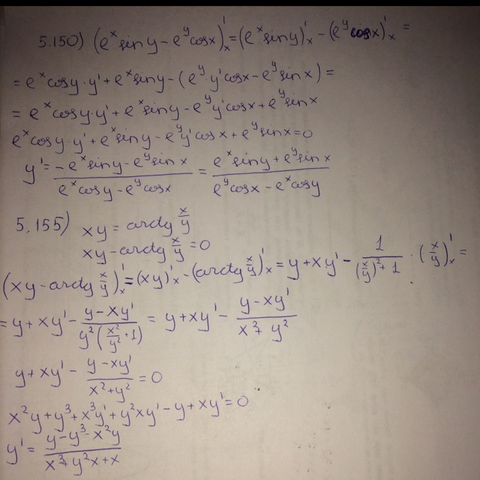 5.150) (e^x sin y - e^y cos x)'_x = (e^x sin y)'_x - (e^y cos x)'_x =
= e^x cos y · y' + e^x sin y - (e^y y' cos x - e^y sin x) =
= e^x cos y · y' + e^x sin y - e^y y' cos x + e^y sin x
e^x cos y · y' + e^x sin y - e^y y' cos x + e^y sin x = 0
y' = (-e^x sin y - e^y sin x)/(e^x cos y - e^y cos x) = (e^x sin y + e^y sin x)/(e^y cos x - e^x cos y)
5.155) xy = arctg x/y
xy - arctg x/y = 0
(xy - arctg x/y)'_x = (xy)'_x - (arctg x/y)'_x = y + xy' - 1/((x/y)^2 + 1) · (x/y)'_x =
= y + xy' - (y - xy')/(y^2(x^2/y^2 + 1)) = y + xy' - (y - xy')/(x^2 + y^2)
y + xy' - (y - xy')/(x^2 + y^2) = 0
x^2y + y^3 + x^3y' + y^2xy' - y + xy' = 0
y' = (y - y^3 - x^2y)/(x^3 + y^2x + x)